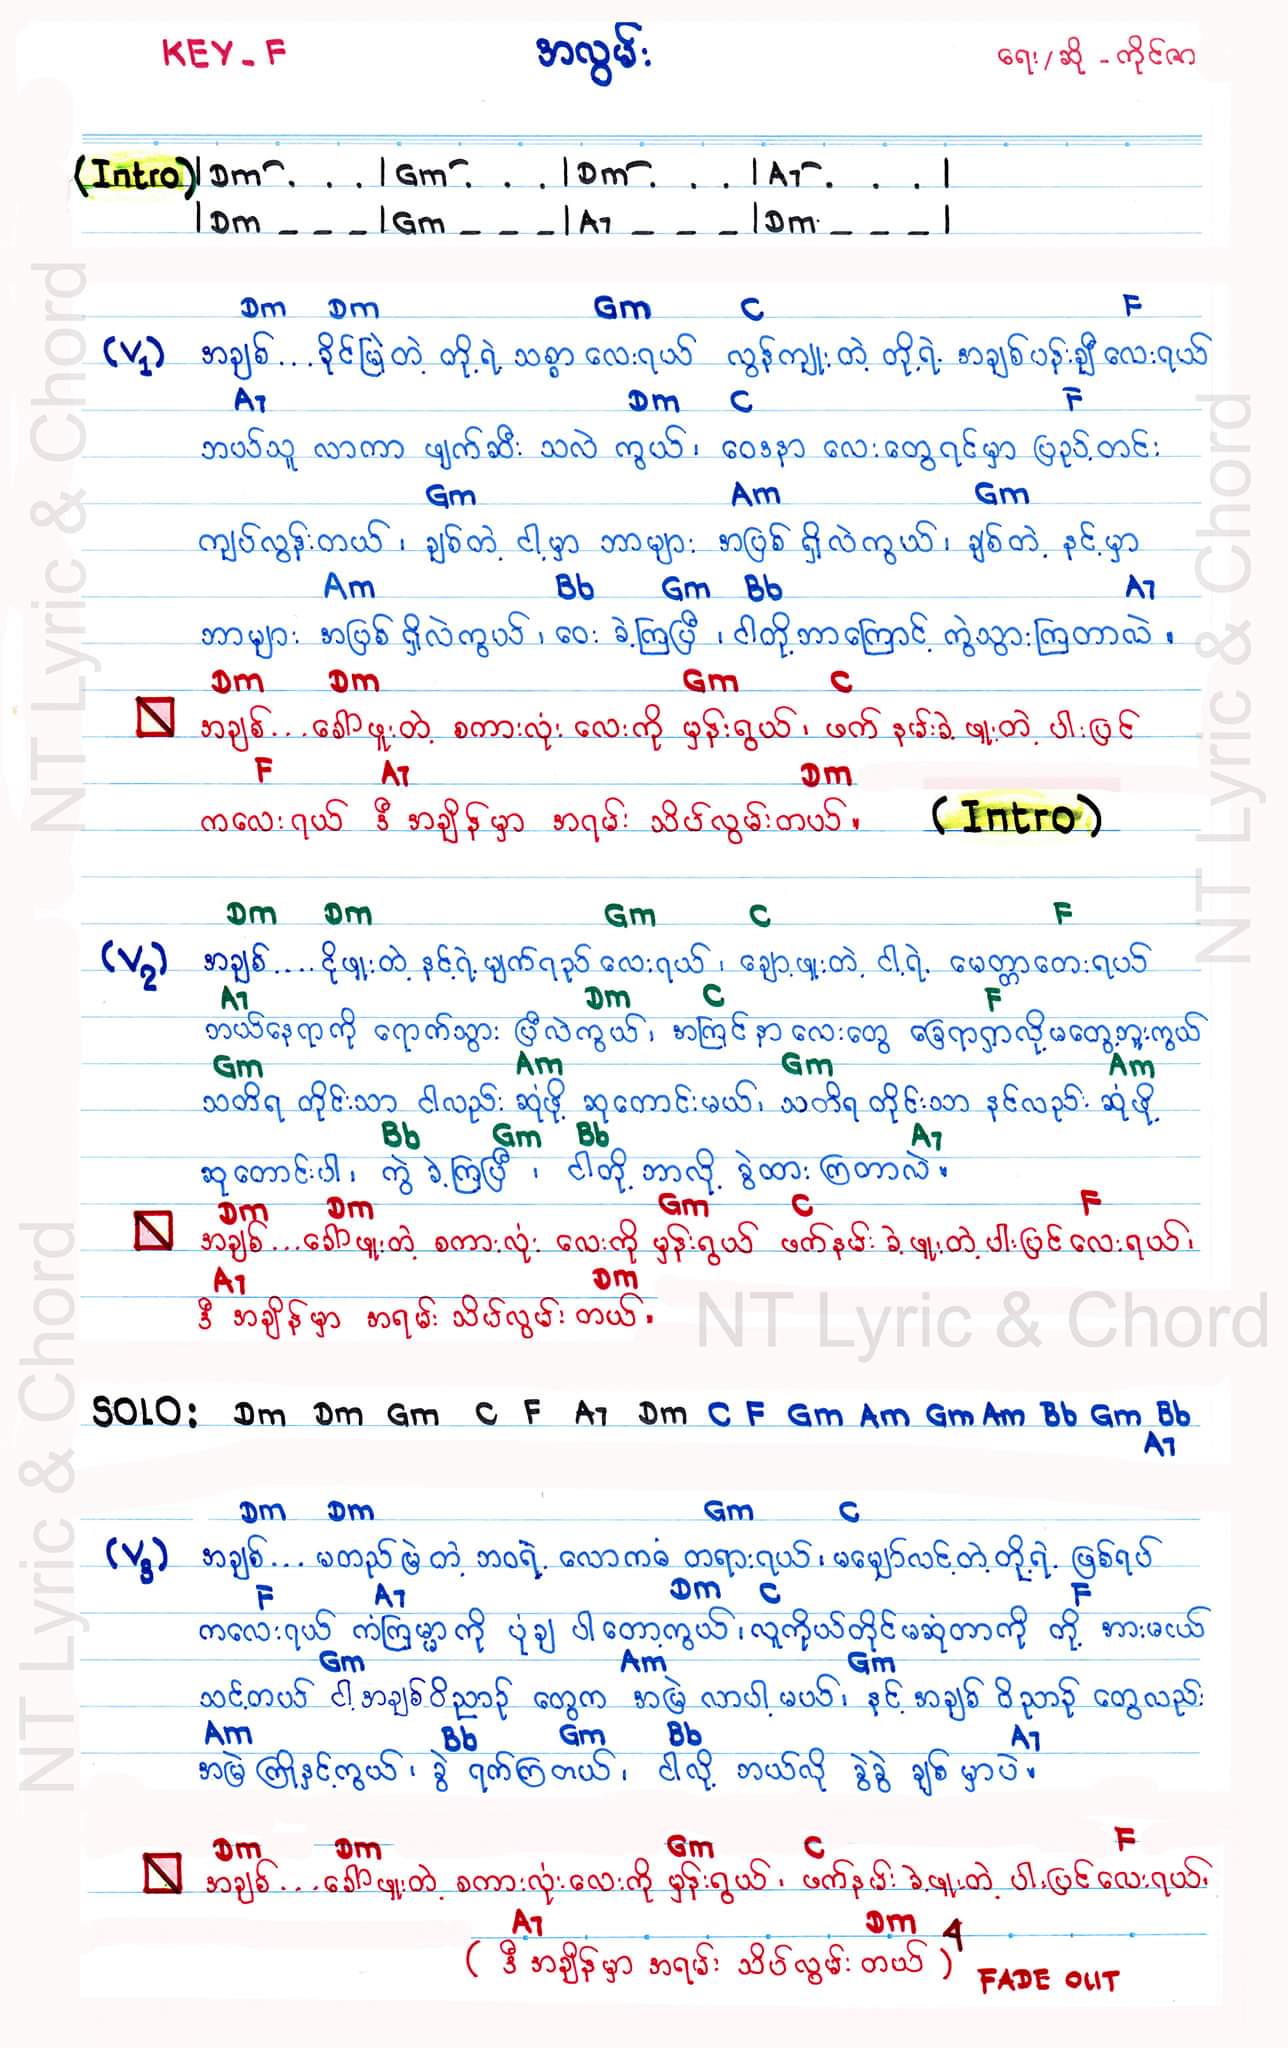 KEY - F
အလွမ်း
ရေး/ဆို - ကိုင်ဇာ
(Intro) |Dm . . . |Gm . . . |Dm . . . |A7 . . . |
|Dm _ _ _ |Gm _ _ _ |A7 _ _ _ |Dm _ _ _ |
Dm Dm Gm C F
(V1) အချစ်... ခိုင်မြဲတဲ့ တို့ရဲ့ သစ္စာလေးရယ် လွန်ကျူးတဲ့ တို့ရဲ့ အချစ်ပန်းချီလေးရယ်
A7 Dm C F
ဘယ်သူ လာကာ ဖျက်ဆီး သလဲ ကွယ်၊ ဝေဒနာ လေးတွေရင်မှာ ပြည့်တင်း
Gm Am Gm
ကျပ်လွန်းတယ်၊ ချစ်တဲ့ ငါ့မှာ ဘာများ အပြစ် ရှိလဲကွယ်၊ ချစ်တဲ့ နင့်မှာ
Am Bb Gm Bb A7
ဘာများ အပြစ် ရှိလဲကွယ်၊ ဝေး ခဲ့ကြပြီ၊ ငါတို့ဘာကြောင့် ကွဲသွားကြတာလဲ။
Dm Dm Gm C
အချစ်...ခေါ်ဖူးတဲ့ စကားလုံး လေးကို မှန်းရွယ်၊ ဖက် နမ်းခဲ့ဖူးတဲ့ ပါးပြင်
F A7 Dm
ကလေးရယ် ဒီ အချိန်မှာ အရမ်း သိပ်လွမ်းတယ်။ (Intro)
Dm Dm Gm C F
(V2) အချစ်.... ငိုဖူးတဲ့ နင့်ရဲ့မျက်ရည်လေးရယ်၊ ချော့ဖူးတဲ့ ငါ့ရဲ့ မေတ္တာတေးရယ်
A7 Dm C F
ဘယ်နေရာကို ရောက်သွား ပြီလဲကွယ်၊ အကြင်နာလေးတွေ ခြေရာရှာလို့မတွေ့ဘူးကွယ်
Gm Am Gm Am
သတိရ တိုင်းသာ ငါလည်း ဆုံဖို့ ဆုတောင်းမယ်၊ သတိရတိုင်းသာ နင်လည်း ဆုံဖို့
Bb Gm Bb A7
ဆုတောင်းပါ၊ ကွဲ ခဲ့ကြပြီ၊ ငါတို့ ဘာလို့ ခွဲထား ကြတာလဲ။
Dm Dm Gm C F
အချစ်...ခေါ်ဖူးတဲ့ စကားလုံး လေးကို မှန်းရွယ် ဖက်နမ်းခဲ့ဖူးတဲ့ ပါးပြင်လေးရယ်၊
A7 Dm
ဒီ အချိန်မှာ အရမ်း သိပ်လွမ်းတယ်။
SOLO: Dm Dm Gm C F A7 Dm C F Gm Am Gm Am Bb Gm Bb
A7
Dm Dm Gm C
(V3) အချစ်... မတည်မြဲတဲ့ ဘဝရဲ့ လောကဓံ တရားရယ်၊ မမျှော်လင့်တဲ့တို့ရဲ့ ဖြစ်ရပ်
F A7 Dm C F
ကလေးရယ် ကံကြမ္မာကို ပုံချ ပါတော့ကွယ်၊ လူကိုယ်တိုင်မဆုံတာကို တို့ အားမငယ်
Gm Am Gm
သင့်တယ် ငါ့အချစ်ဝိညာဉ် တွေက အမြဲ လာပါ့မယ်၊ နင့်အချစ် ဝိညာဉ် တွေလည်း
Am Bb Gm Bb A7
အမြဲ ကြိုနှင့်ကွယ်၊ ခွဲ ရက်ကြတယ်၊ ငါလို့ ဘယ်လို ခွဲခွဲ ချစ်မှာပဲ။
Dm Dm Gm C F
အချစ်...ခေါ်ဖူးတဲ့ စကားလုံးလေးကို မှန်းရွယ်၊ ဖက်နမ်းခဲ့ဖူးတဲ့ ပါးပြင်လေးရယ်၊
A7 Dm 4
( ဒီ အချိန်မှာ အရမ်း သိပ်လွမ်းတယ် )
FADE OUT
NT Lyric & Chord
NT Lyric & Chord
NT Lyric & Chord
NT Lyric & Chord